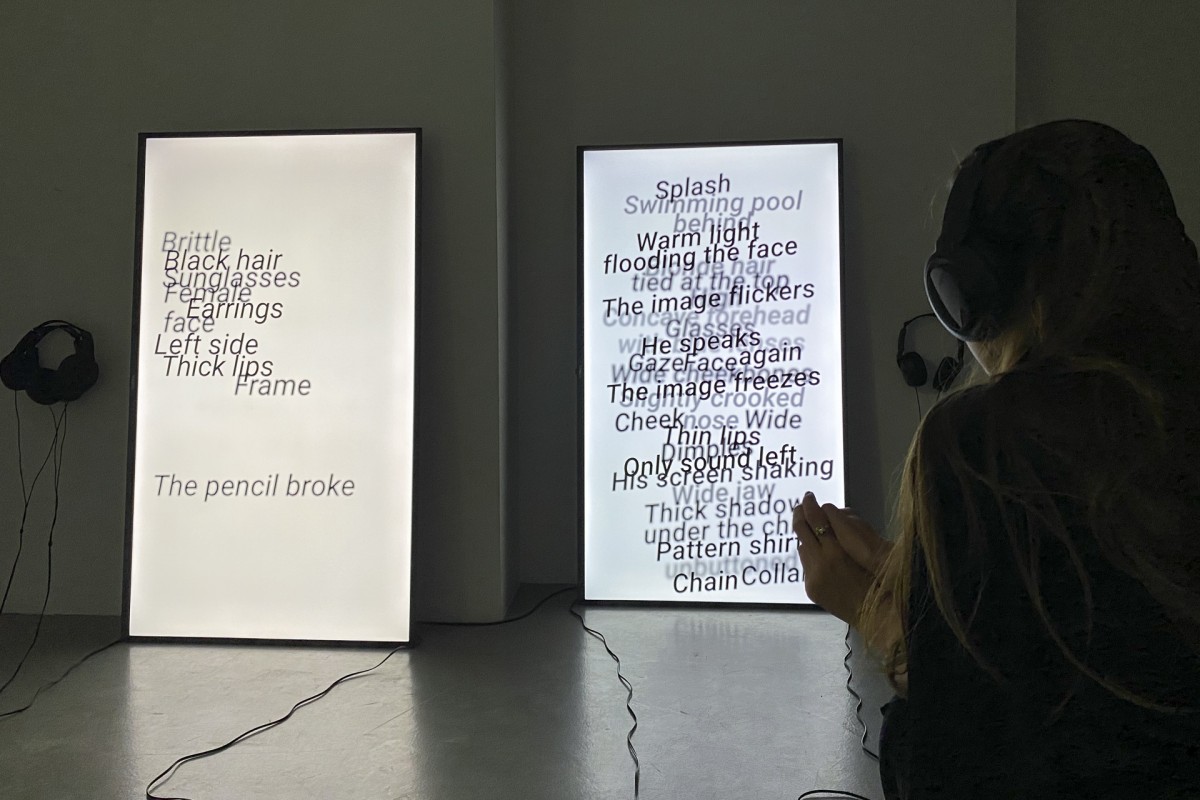 Brittle
Black hair
Sunglasses
Female
Earrings
face
Left side
Thick lips
Frame
The pencil broke
Splash
Swimming pool
behind
Warm light
flooding the face
hair
tied at the top
The image flickers
Concave forehead
Glasses
He speaks
Gaze Face again
Wide cheekbones
The image freezes
Slightly crooked
Cheek nose Wide
Thin lips
Dimples
Only sound left
His screen shaking
Wide jaw
Thick shadow
under the
Pattern shirt
unbuttoned
Chain